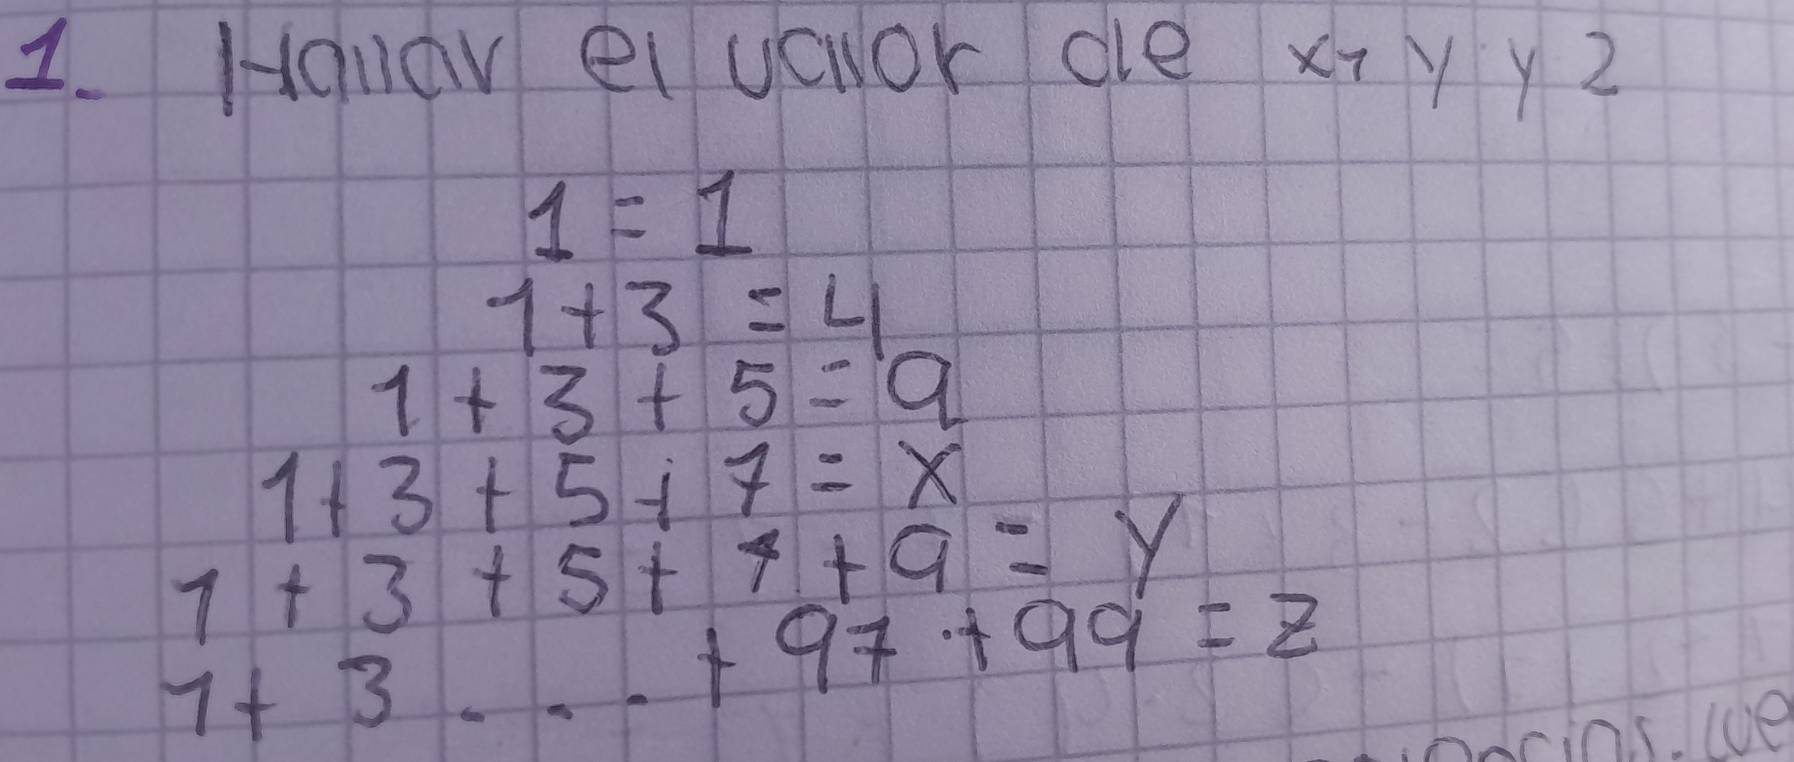 1. Hallar el valor de x, y y z
1 = 1
1 + 3 = 4
1 + 3 + 5 = 9
1 + 3 + 5 + 7 = x
1 + 3 + 5 + 7 + 9 = y
1 + 3 . . . + 97 + 99 = z